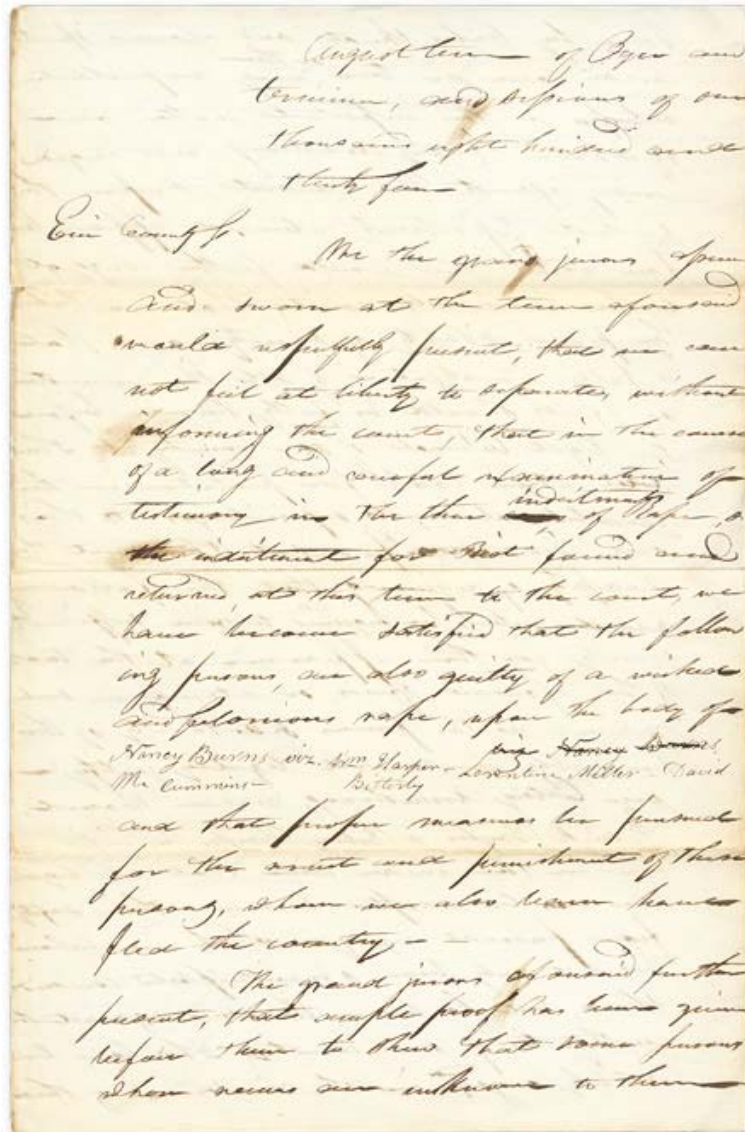 August term of Oyer and
terminer, and sessions of one
thousand eight hundred and
thirty four
Erie County ss.
We the grand jurors
and sworn at the term aforesaid
would respectfully present, that we can
not feel at liberty to separate, without
informing the court, that in the course
of a long and careful examination of
testimony in the three indictments of Rape, &
the indictment for Riot found and
returned, at this term to the court, we
have become satisfied that the follow
ing persons, are also guilty of a wicked
and felonious rape, upon the body of
viz Nancy Burns
Nancy Burns viz. Wm Harper - Miller David
Mc Cummins - Bitterly
and that proper measures be pursued
for the arrest and punishment of these
persons, whom we also learn have
fled the country -
The grand jurors aforesaid further
present, that ample proof has been given
before them to shew that some persons
whose names are unknown to them